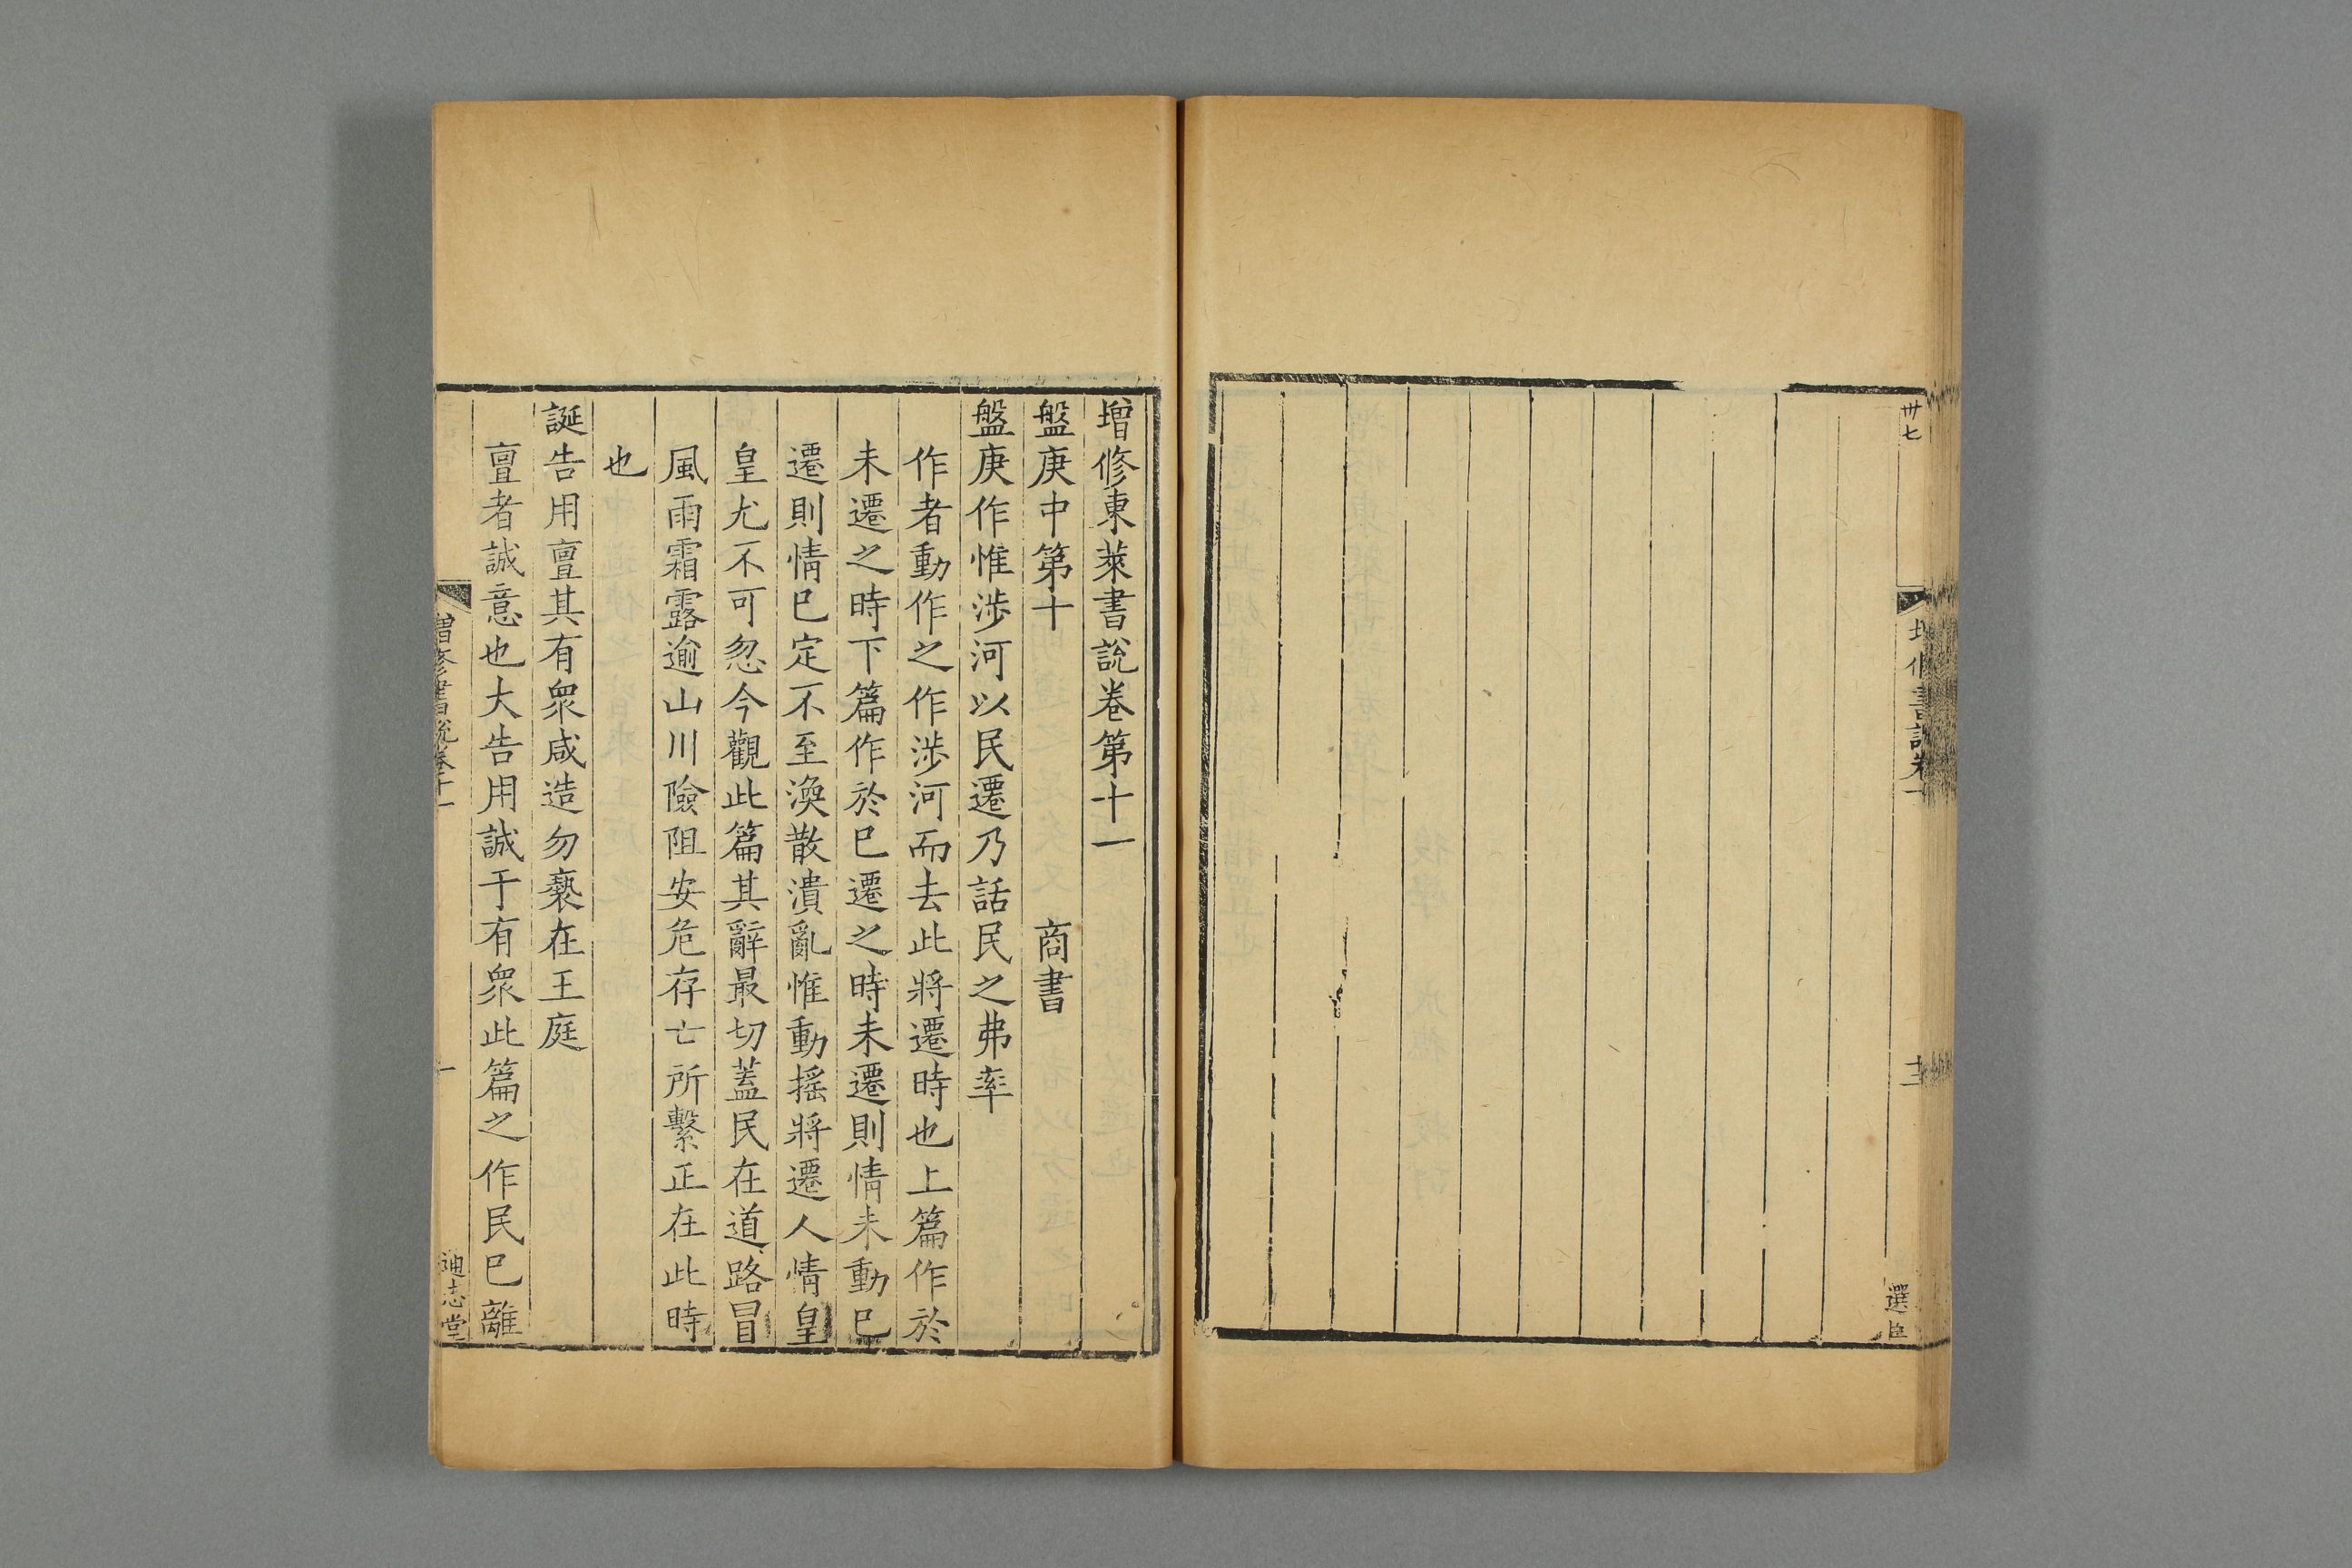 卅七
書
十二
選臣
增修東萊書說卷第十一
盤庚中第十 商書
盤庚作惟涉河以民遷乃話民之弗率
作者動作之作涉河而去此將遷時也上篇作於
未遷之時下篇作於巳遷之時未遷則情未動巳
遷則情巳定不至渙散潰亂惟動摇將遷人情皇
皇尤不可忽今觀此篇其辭最切蓋民在道路冒
風雨霜露逾山川險阻安危存亡所繫正在此時
也
誕告用亶其有衆咸造勿䙝在王庭
亶者誠意也大告用誠于有衆此篇之作民巳離
增修書說卷十一
一
迪志堂